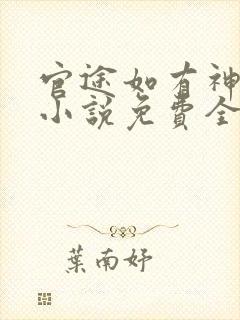 官途如有神
小説免費全
葉南妤